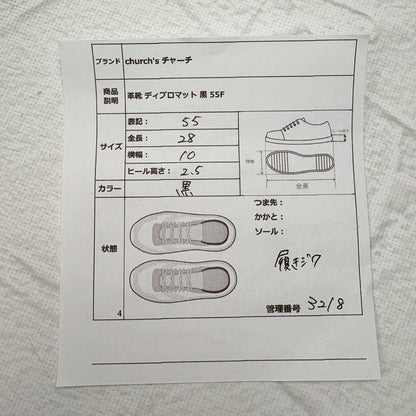 ブランド church's チャーチ
商品説明 革靴 ディプロマット 黒 55F
サイズ
表記： 55
全長： 28
横幅： 10
ヒール高さ： 2.5
ヒール高さ
横幅
全長
カラー 黒
状態
つま先：
かかと：
ソール：
履きジワ
4
管理番号 3218